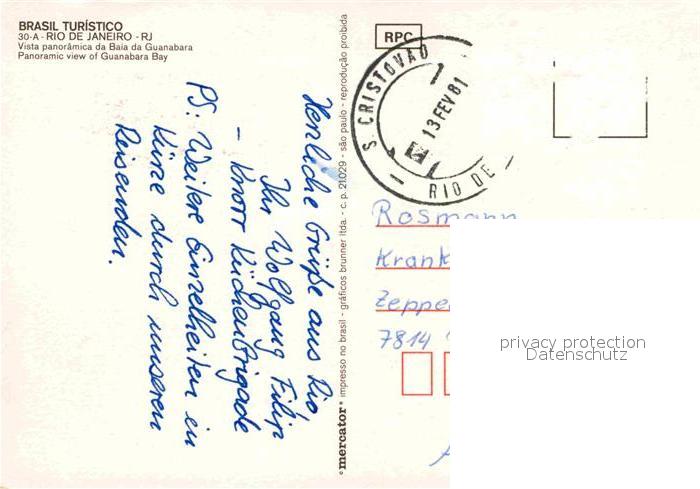 BRASIL TURÍSTICO
30-A - RIO DE JANEIRO - RJ
Vista panorâmica da Baia da Guanabara
Panoramic view of Guanabara Bay
Herzliche Grüße aus Rio,
Ihr Wolfgang Filip
- Knorr Küchenbrigade
PS: Weitere Einzelheiten in
Kürze durch unseren
Reisenden.
©mercator® impresso no brasil - gráficos brunner ltda. - c. p. 21.029 - são paulo - reprodução proibida
RPC
S. CRISTOVÃO
13 FEV 81
RIO DE
Rosmann
Krank
Zeppe
7814
privacy protection
Datenschutz